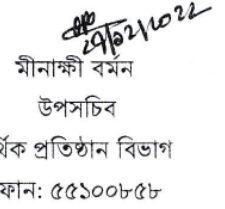 ২৭/১২/২০২২
মীনাক্ষী বর্মন
উপসচিব
র্থিক প্রতিষ্ঠান বিভাগ
ফোন: ৫৫১০০৮৫৮